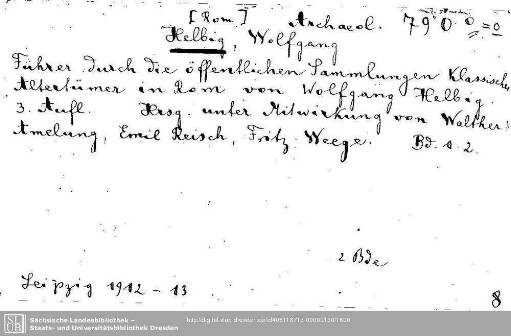 [Rom.] Archaeol. 790.
Helbig, Wolfgang
Führer durch die öffentlichen Sammlungen Klassischer
Altertümer in Rom von Wolfgang Helbig.
3. Aufl. Hrsg. unter Mitwirkung von Walther
Amelung, Emil Reisch, Fritz Weege. Bd. 1. 2.
2 Bde
Leipzig 1912 - 13
8
Sächsische Landesbibliothek –
Staats- und Universitätsbibliothek Dresden